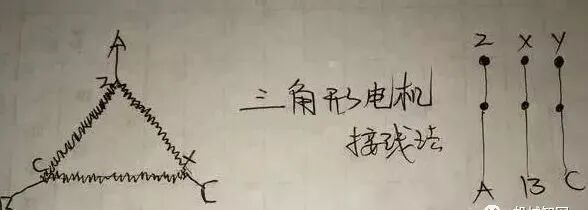 A
Z
C X
C
三角形电机
接线法
Z X Y
A B C